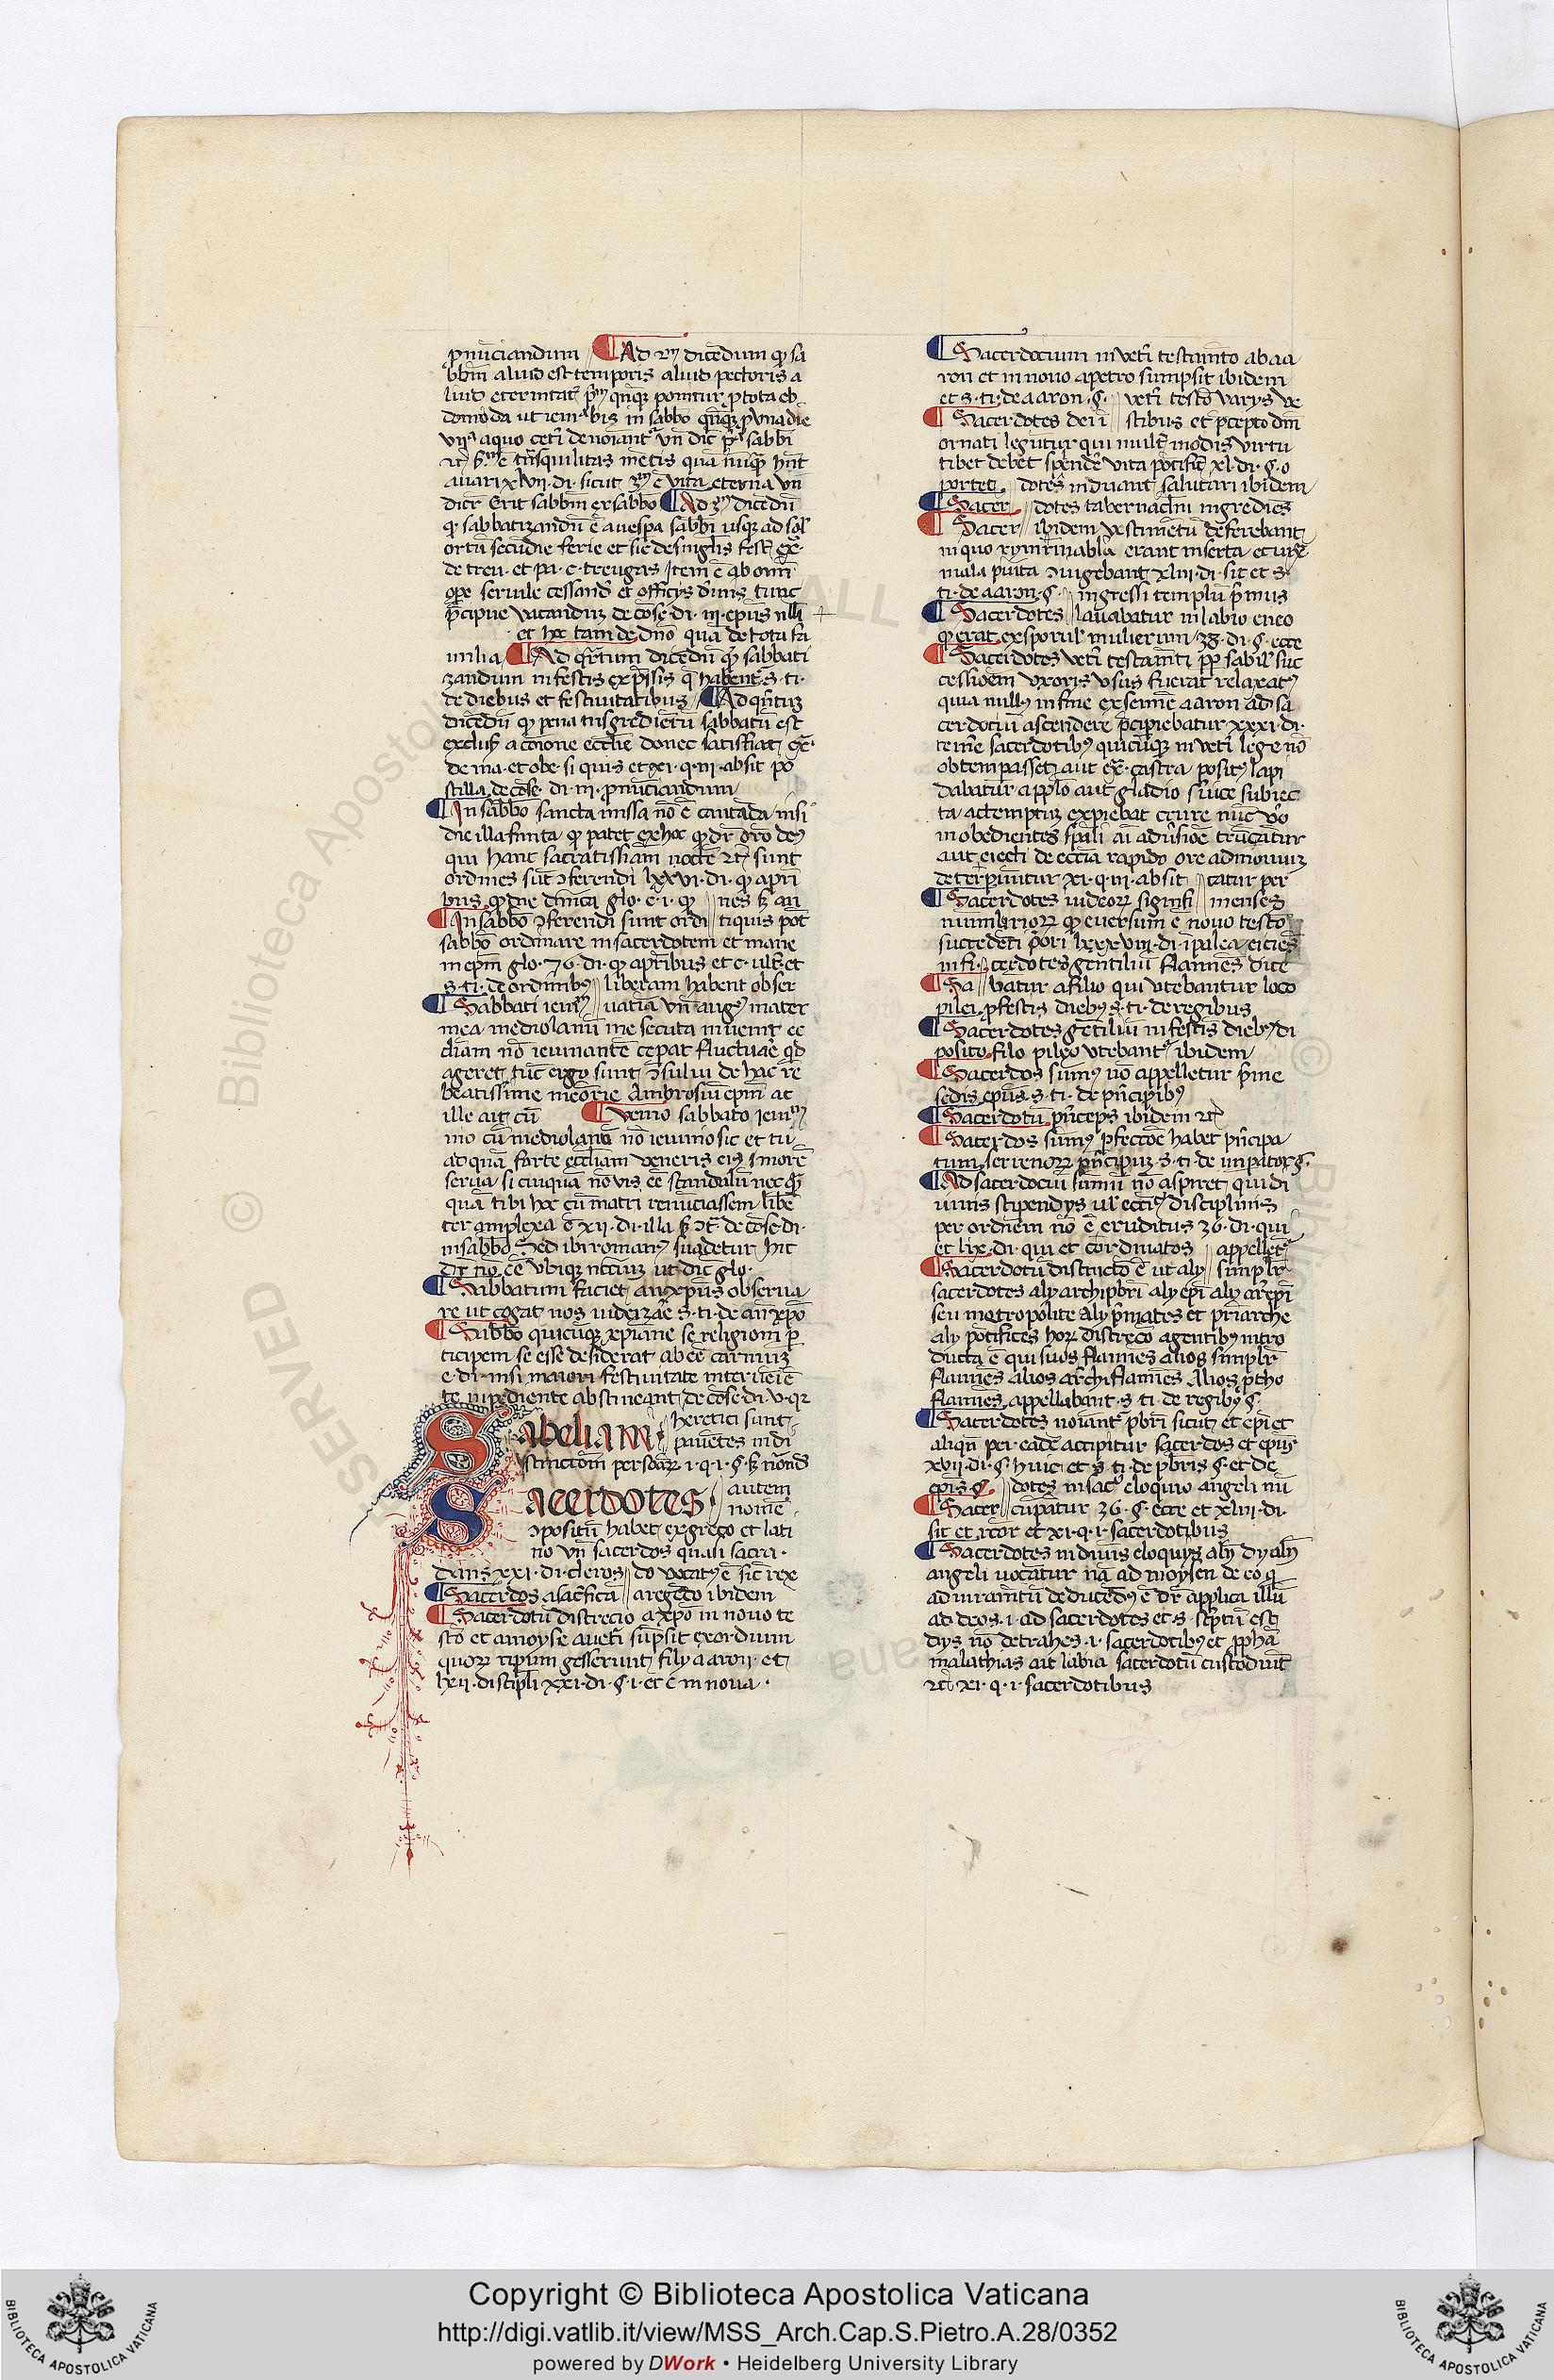 pnūciandum ¶ Ad 2m̄ dicēdum qɔ sa
bbm̄ aliud est temporis aliud pectoris a
liud eternitatꝭ pm̄ qnq̄ꝫ ponitur p tota eb
domoda ut ieiuº bis in sabbº qn̄qꝫ p una die
viiª a quo ceti denoīantr
auari xlvii di. sicut 3m̄ ē vita eterna vn̄
dicr̄ Erit sabbm̄ ex sabbº ¶ Ad 3m̄ dicēdū
qɔ sabbatizandū ē a uespa sabbi usqꝫ ad sol'
ortū secūde ferie et sic de singlis fest' ex̄
de treu. et pa. c. treugas Item ē ab om̄i
ope seruile cessand' et officys diuīs tunc
p̄cipue vacandū de cōse. di. iii. epūs nllī
et hoc tam de dn̄o quā de tota fa
milia ¶ Ad qrtum dicēdū qɔ sabbati
zandum in festis exp̄ssis q̄ habent' s. ti.
de diebus et festiuitatibus ¶ Ad qn̄tū
dicēdū qɔ pena tn̄sgredientiū sabbatū est
exclus' a cōione ecclie donec satisfiat ex̄.
de ma. et obe. si quis et xi. q. iii. absit po
stilla de cōse. di. iii. pnūciandum
¶ In sabbo sancta missa nō ē cantāda nisi
die illa finita qɔ patet ex hoc qɔ dr̄ or̄o deꝰ
qui hanc sacratissimā noctē ꝛc̄ sunt
ordines sūt ↄferendi lxxvi. di. qɔ a pri
bus qɔ die dn̄ica glo. e. i. qɔ // nes s; an
¶ In sabbo ↄferendi sunt ordi // tiquis pot'
sabbo ordinare in sacerdotem et mane
in epm̄ glo. 76. di. qɔ a pribus et c. ult. et
s. ti. de ordinibꝰ // liberam habent obser
¶ Sabbati ieiuⁱᵘᵐ // uatiā vn̄ augꝰ mater
mea mediolanū me secuta inuenit ec
cliam nō ieiunantē cepat fluctuare qd
ageret tūc ergo sunt ↄsului de hac re
beatissime meōrie Ambrosiū epm̄ at
ille ait cū ¶ venio sabbato ieiuⁱᵘᵐ
mo cū mediolanū nō ieiuno sic et tu
ad quā forte eccliam veneris eiꝰ morē
serua si cuiquā nō vis ēē scandalū nec qɔ
quā tibi hoc cū matri renūciassem libē
ter amplexa ē xii. di. illa s; ↄt̄ de cōse. di.
in sabbo Sed ibi romanꝰ suadetur hic
dr̄ nō ēē vbiqꝫ nccīum ut dic glo.
¶ Sabbatum faciet anxpūs obserua
re ut cogat nos iudeizare s. ti. de an xpo
¶ Sabbo quicūqꝫ xpiane se religioni p
ticipem se esse desiderat ab eē carniuꝫ
e. di. nisi maiori festiuitate interueiē
te ipediente abstineant de cōse. di. v. qr
Sabeliani // heretici sunt
// putētes indi
stinctōm persoarꝫ i. q. i. §. s; nōand'
Sacerdotes // autem
nomē
ↄpositū habet ex greco et lati
no vn̄ sacerdos quasi sacra
dans xxi. di. cleros // do vocatꝰ ē sic rex
¶ Sacerdos a sacficā // a regēdo ibidem
¶ Sacerdotū distrecio a xpo in nouo te
sto et a moyse a ueti sūpsit exordium
quorꝫ tipum gesserunt fily aaron et
lxii. discipli xxi. di. §. i. et c. in noua.
¶ Sacerdocium in veti testam̄to ab aa
ron et in nouo a petro sumpsit ibidem
et s. ti. de aaron. §. // veti testō varys ve
¶ Sacerdotes dei i // stibus et p̄cepto dn̄i
ornati legūtur qui mult' modis virtu
tibet debet spendē vita pōtific xl. di. §. o
portet // dotes induant salutari ibidem
¶ Sacer // dotes tabernaclm̄ ingredies
¶ Sacer // ibidem vestimētū deferebant
in quo xii nr̄inabla erant inserta et
ti. de aaron. §. // ingressi templū pimus
¶ Sacerdotes // lauabatur in labio eneo
qɔ erat ex sporul' mulierum 38. di. §. ecce
¶ Sacerdotes veti testam̄ti pp̄ sabil' suc
cessioem vxoris vsus fuerat relaxatꝰ
quia nullꝰ in sine ex semie aaron ad sa
cerdociū ascendere p̄cipiebatur xxxi. di.
tenē sacerdotibꝰ quicūqꝫ in veti lege nō
obtempasset aut ex̄. castra positꝰ lapi
dabatur a pplo aut gladio s'uice subiec
ta ctemptū expiebat cruore nūc vo
inobedientes spali aī aduisioē trūcatur
aut eiecti de ecclia rapido ore admouiuꝫ
deterpiuntur xi. q. iii. absit // tatur per
¶ Sacerdotes iudeorꝫ signifi // menses
nūmlariorꝫ qɔ euersum ē nouo testō
succedēti pori lxxxviii. di. i palea eicies
in fi. // cerdotes gentiliū flamies dice
¶ Sa // bātur a filo qui vtebantur loco
pilei p festis diebꝰ s. ti. de regibus
¶ Sacerdotes gētiliū in festis diebꝰ di
posito filo pileo vtebantr ibidem
¶ Sacerdos sūmꝰ nō appelletur pime
sedis epūs. s. ti. de pncipibꝰ
¶ Sacerdotū pnceps ibidem ꝛc̄
¶ Sacerdos sūmꝰ pfectōe habet pncipa
tum terrenorꝫ pncipum. s. ti. de impator §.
¶ Ad sacerdociū sūmū nō aspiret qui di
uinis stipendys ul' eccti' disciplinis
per ordinem nō ē eruditus 36. di. qui
et lix. di. qui et cordinatos // appellet'
¶ Sacerdotū distinctō ē ut aly // simplr
sacerdotes aly archipbri aly epi aly arepi
seu metropolite aly pmates et priarche
aly pōtifices horꝫ discrecō a gentibꝰ intro
ducta ē qui suos flamines alios simplr
flamines alios archiflamies alios ptho
flamines appellabant. s. ti. de regibꝰ §.
¶ Sacerdotes noiantr pbri sicut et epi et
aliqn̄ per eādē accipitur sacerdos et epūs
xvii. di. §. huic et s. ti. de pbris §. et de
epis §. // dotes in sac' eloquio angeli nū
¶ Sacer // cupātur 36. §. ecce et xliii. di.
sit et rcor et xi. q. i. sacerdotibus
¶ Sacerdotes in diuis eloquys alīn dy alīn
angeli vocātur nā ad moysen de eo q
ad iuram̄tū deducedꝰ ē dr̄ applica illū
ad deos. i. ad sacerdotes et s. scptū est
dys nō detrahes. i. sacerdotibꝰ et pphā
malathias ait labia sacerdotū custodiūt
ꝛc̄ xi. q. i. sacerdotibus
Copyright © Biblioteca Apostolica Vaticana
http://digi.vatlib.it/view/MSS_Arch.Cap.S.Pietro.A.28/0352
powered by DWork • Heidelberg University Library
BIBLIOTECA APOSTOLICA VATICANA
BIBLIOTECA APOSTOLICA VATICANA